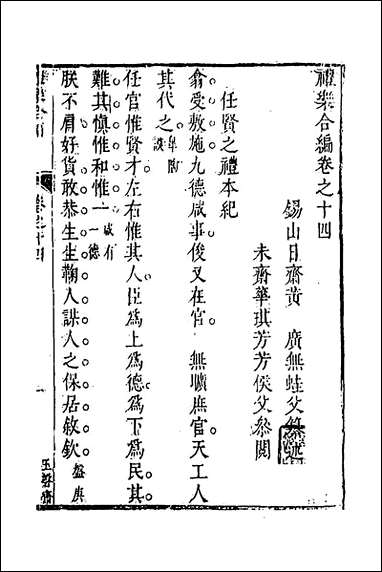 禮樂合編卷之十四
錫山日齋黃　廣無蛙父
未齋華琪芳芳侯父叅閱
任賢之禮本紀
翕受敷施九德咸事俊乂在官　無曠庶官天工人
其代之臯陶謨
任官惟賢才左右惟其人臣爲上爲德爲下爲民其
難其愼惟和惟一咸有一德
朕不肩好貨敢恭生生鞠人謀人之保居敘欽盤庚
卷之十四